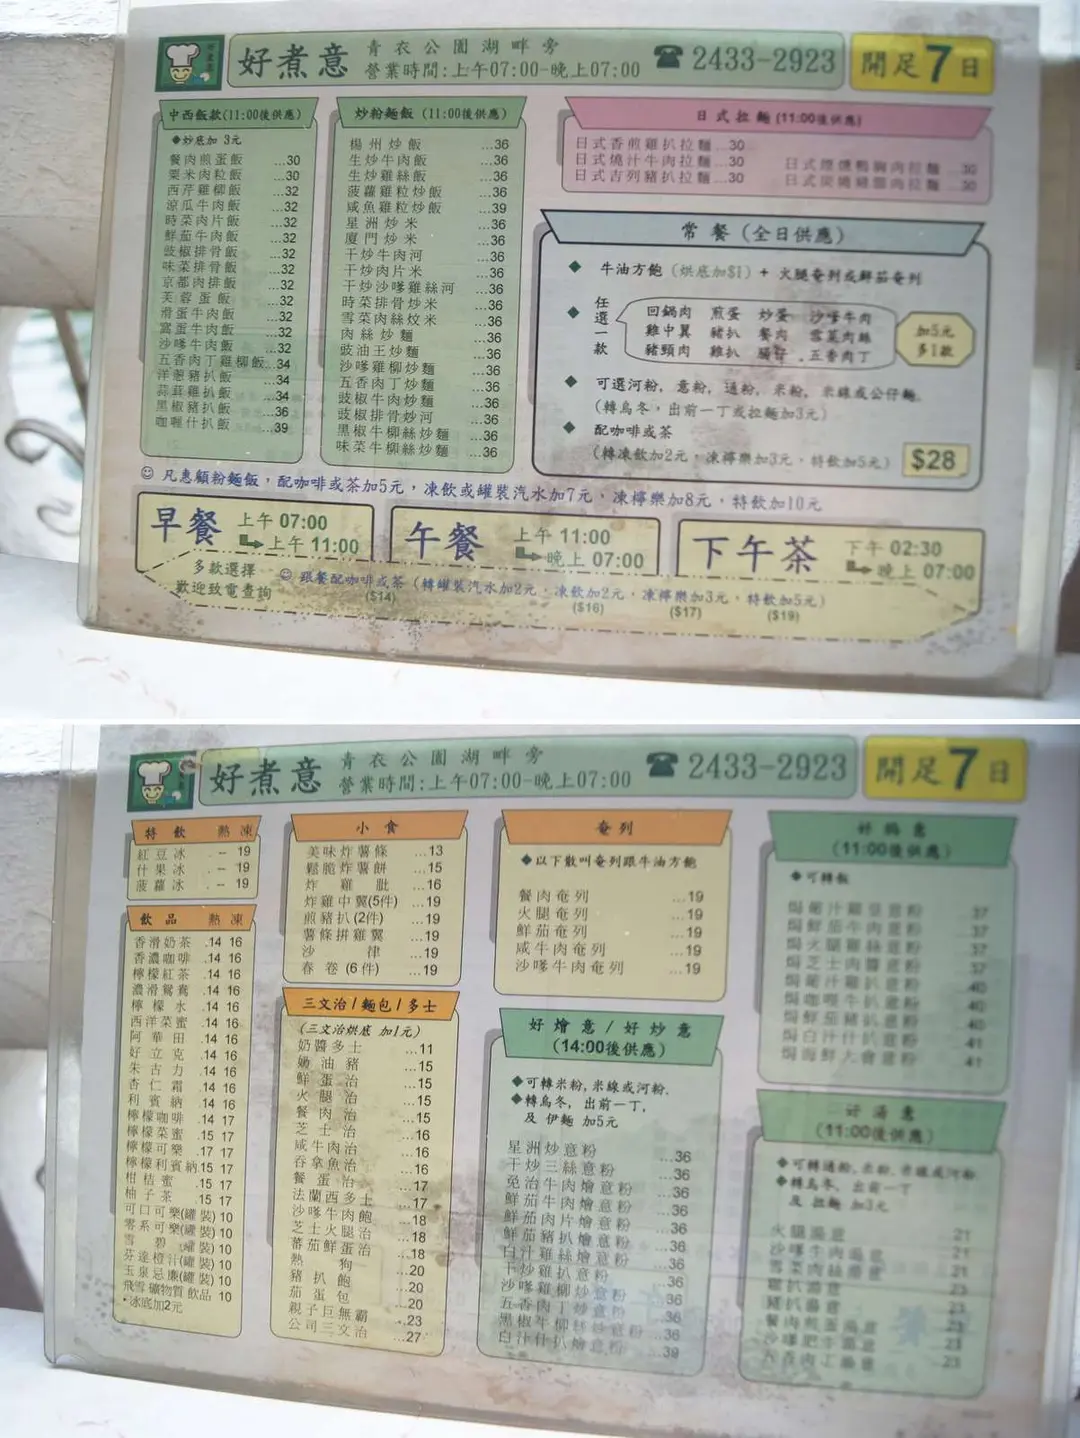 好煮意
青衣公園湖畔旁
營業時間:上午07:00-晚上07:00
☎ 2433-2923
開足7日
中西飯款(11:00後供應)
◆炒底加 3元
餐肉煎蛋飯 ...30
粟米肉粒飯 ...30
西芹雞柳飯 ...32
涼瓜牛肉飯 ...32
時菜肉片飯 ...32
鮮茄牛肉飯 ...32
豉椒排骨飯 ...32
味菜排骨飯 ...32
京都肉排飯 ...32
芙蓉蛋飯 ...32
滑蛋牛肉飯 ...32
窩蛋牛肉飯 ...32
沙嗲牛肉飯 ...32
五香肉丁雞柳飯 ...34
洋蔥豬扒飯 ...34
蒜茸雞扒飯 ...34
黑椒豬扒飯 ...36
咖喱什扒飯 ...39
炒粉麵飯 (11:00後供應)
楊州炒飯 ...36
生炒牛肉飯 ...36
生炒雞絲飯 ...36
菠蘿雞粒炒飯 ...36
咸魚雞粒炒飯 ...39
星洲炒米 ...36
廈門炒米 ...36
干炒牛肉河 ...36
干炒肉片米 ...36
干炒沙嗲雞絲河 ...36
時菜排骨炒米 ...36
雪菜肉絲炆米 ...36
肉絲炒麵 ...36
豉油王炒麵 ...36
沙嗲雞柳炒麵 ...36
五香肉丁炒麵 ...36
豉椒牛肉炒麵 ...36
豉椒排骨炒河 ...36
黑椒牛柳絲炒麵 ...36
味菜牛柳絲炒麵 ...36
日式拉麵 (11:00後供應)
日式香煎雞扒拉麵...30
日式燒汁牛肉拉麵...30
日式吉列豬扒拉麵...30
日式煙燻鴨胸肉拉麵 ...30
日式炭燒雞 肉拉麵 ...30
常餐 (全日供應)
◆ 牛油方飽 (烘底加$1) + 火腿奄列或鮮茄奄列
◆ 任選一款
回鍋肉 煎蛋 炒蛋 沙嗲牛肉
雞中翼 豬扒 餐肉 雪菜肉絲
豬頸肉 雞扒 腸仔 五香肉丁
加5元
多1款
◆ 可選河粉, 意粉, 通粉, 米粉, 米線或公仔麵,
(轉烏冬, 出前一丁或拉麵加3元)
◆ 配咖啡或茶
(轉凍飲加2元, 凍檸樂加3元, 特飲加5元)
$28
☺ 凡惠顧粉麵飯, 配咖啡或茶加5元, 凍飲或罐裝汽水加7元, 凍檸樂加8元, 特飲加10元
早餐 上午 07:00
上午 11:00
午餐 上午 11:00
晚上 07:00
下午茶 下午 02:30
晚上 07:00
多款選擇
歡迎致電查詢
☺ 跟餐配咖啡或茶 (轉罐裝汽水加2元, 凍飲加2元, 凍檸樂加3元, 特飲加5元)
($14) ($16) ($17) ($19)
好煮意
青衣公園湖畔旁
營業時間:上午07:00-晚上07:00
☎ 2433-2923
開足7日
特飲 熱 凍
紅豆冰 -- 19
什果冰 -- 19
菠蘿冰 -- 19
飲品 熱 凍
香滑奶茶 .14 16
香濃咖啡 .14 16
檸檬紅茶 .14 16
濃滑鴛鴦 .14 16
檸檬水 .14 16
西洋菜蜜 .14 16
阿華田 .14 16
好立克 .14 16
朱古力 .14 16
杏仁霜 .14 16
利賓納 .14 16
檸檬咖啡 .14 17
檸檬菜蜜 .15 17
檸檬可樂 .17 17
檸檬利賓納 .15 17
柑桔蜜 .15 17
柚子茶 .15 17
可口可樂(罐裝) 10
零系可樂(罐裝) 10
雪碧(罐裝) 10
芬達橙汁(罐裝) 10
玉泉忌廉(罐裝) 10
飛雪礦物質飲品 10
*冰底加2元
小食
美味炸薯條 ...13
鬆脆炸薯餅 ...15
炸雞肶 ...16
炸雞中翼(5件) ...19
煎豬扒(2件) ...19
薯條拼雞翼 ...19
沙律 ...19
春卷(6件) ...19
三文治 / 麵包 / 多士
(三文治烘底 加1元)
奶醬多士 ...11
奶油豬 ...15
鮮蛋治 ...15
火腿治 ...15
餐肉治 ...15
芝士治 ...16
咸牛肉治 ...16
吞拿魚治 ...16
餐蛋治 ...17
法蘭西多士 ...17
沙嗲牛肉飽 ...18
芝士火腿治 ...18
蕃茄鮮蛋治 ...18
熱狗 ...20
豬扒飽 ...20
茄蛋包 ...20
親子巨無霸 ...23
公司三文治 ...27
奄列
◆以下散叫奄列跟牛油方飽
餐肉奄列 ...19
火腿奄列 ...19
鮮茄奄列 ...19
咸牛肉奄列 ...19
沙嗲牛肉奄列 ...19
好燴意 / 好炒意
(14:00後供應)
◆可轉米粉, 米線或河粉,
◆轉烏冬, 出前一丁,
及 伊麵 加5元
星洲炒意粉 ...36
干炒三絲意粉 ...36
免治牛肉燴意粉 ...36
鮮茄牛肉燴意粉 ...36
鮮茄肉片燴意粉 ...36
鮮茄豬扒燴意粉 ...36
白汁雞絲燴意粉 ...36
干炒雞扒意粉 ...36
沙嗲雞柳炒意粉 36
五香肉丁炒意粉 ...36
黑椒牛柳絲炒意粉 ...36
白汁什扒燴意粉 ...39
好焗意
(11:00後供應)
◆可轉飯
焗葡汁雞 意粉 37
焗鮮茄牛肉意粉 37
焗火腿雞絲意粉 37
焗芝士肉醬意粉 37
焗葡汁雞扒意粉 40
焗咖喱牛扒意粉 40
焗鮮茄豬扒意粉 40
焗白汁什扒意粉 41
焗海鮮大會意粉 41
好湯意
(11:00後供應)
◆可轉通粉, 米粉, 米線或河粉
◆轉烏冬, 出前一丁
及 拉麵 加3元
火腿湯意 21
沙嗲牛肉湯意 21
雪菜肉絲湯意 21
雞扒湯意 23
豬扒湯意 23
餐肉煎蛋湯意 23
沙嗲肥牛湯意 23
五香肉丁湯意 23